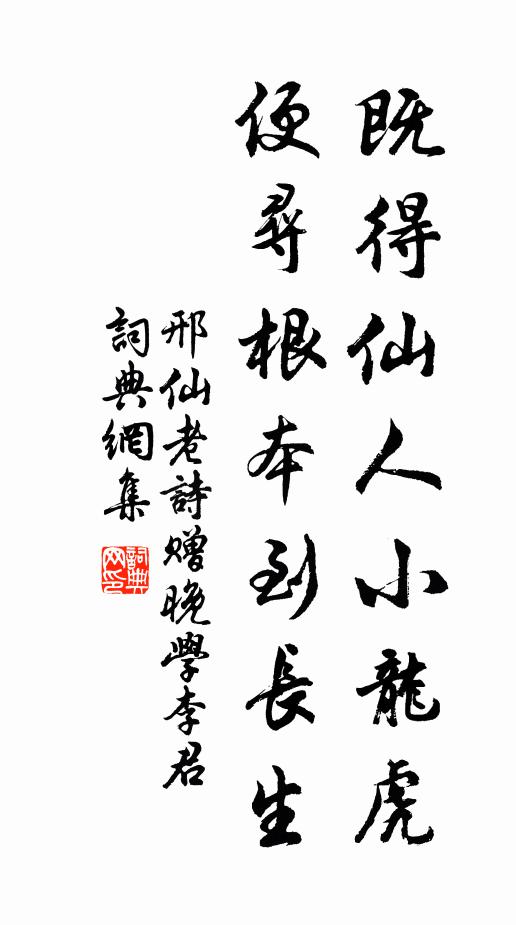 既得仙人小龍虎
便尋根本到長生
邢仙老詩贈晚學李君
詞典網集
詞典
网印